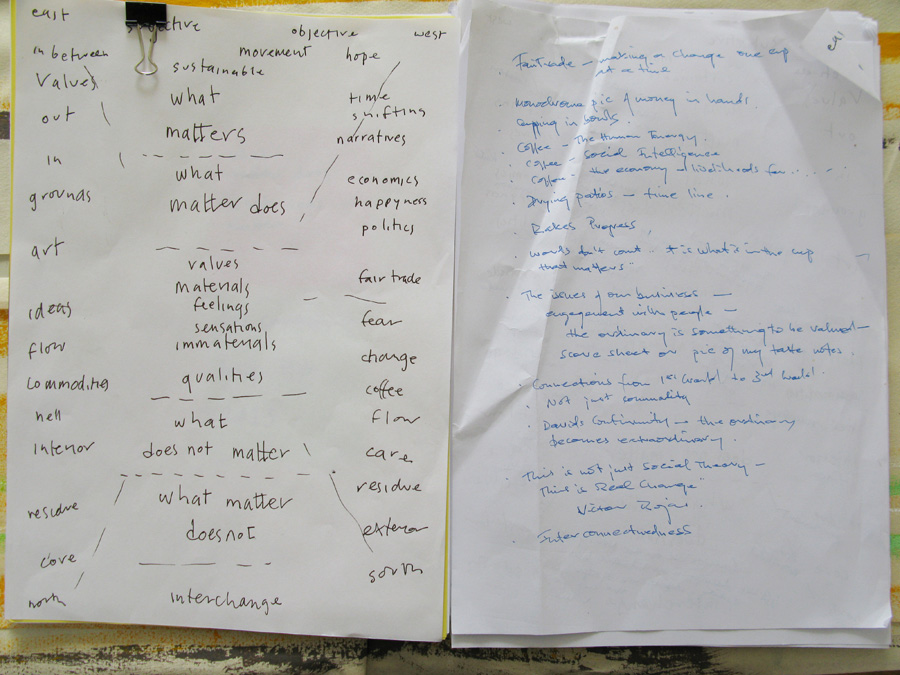 east
subjective
objective
west
in between
movement
hope
values
sustainable
what
out
time
shifting
matters
narratives
in
what
grounds
matter does
economics
happyness
politics
art
values
materials
fair trade
ideas
feelings
sensations
fear
flow
immaterials
change
commodities
qualities
coffee
hell
what
flow
interior
does not matter
care
what matter
residue
residue
does not
exterior
core
south
north
interchange
eas
Fairtrade – making a change one cup
at a time
monochrome pic of money in hands.
cupping in bowls.
Coffee – The Human Energy.
coffee – Social Intelligence
Coffee – the economy – livelihoods for.....
Drying patios – time line.
Rakes Progress,
words don't count.. it is what is in the cup
that matters"
The issues of our business –
engagement with people –
the ordinary is something to be valued –
score sheet or pic of my taste notes.
Connections from 1st world to 3rd world.
Not just commodity
Davids Continuity – the ordinary
becomes extraordinary.
This is not just Social Theory –
This is Real Change"
Victor
Interconnectedness